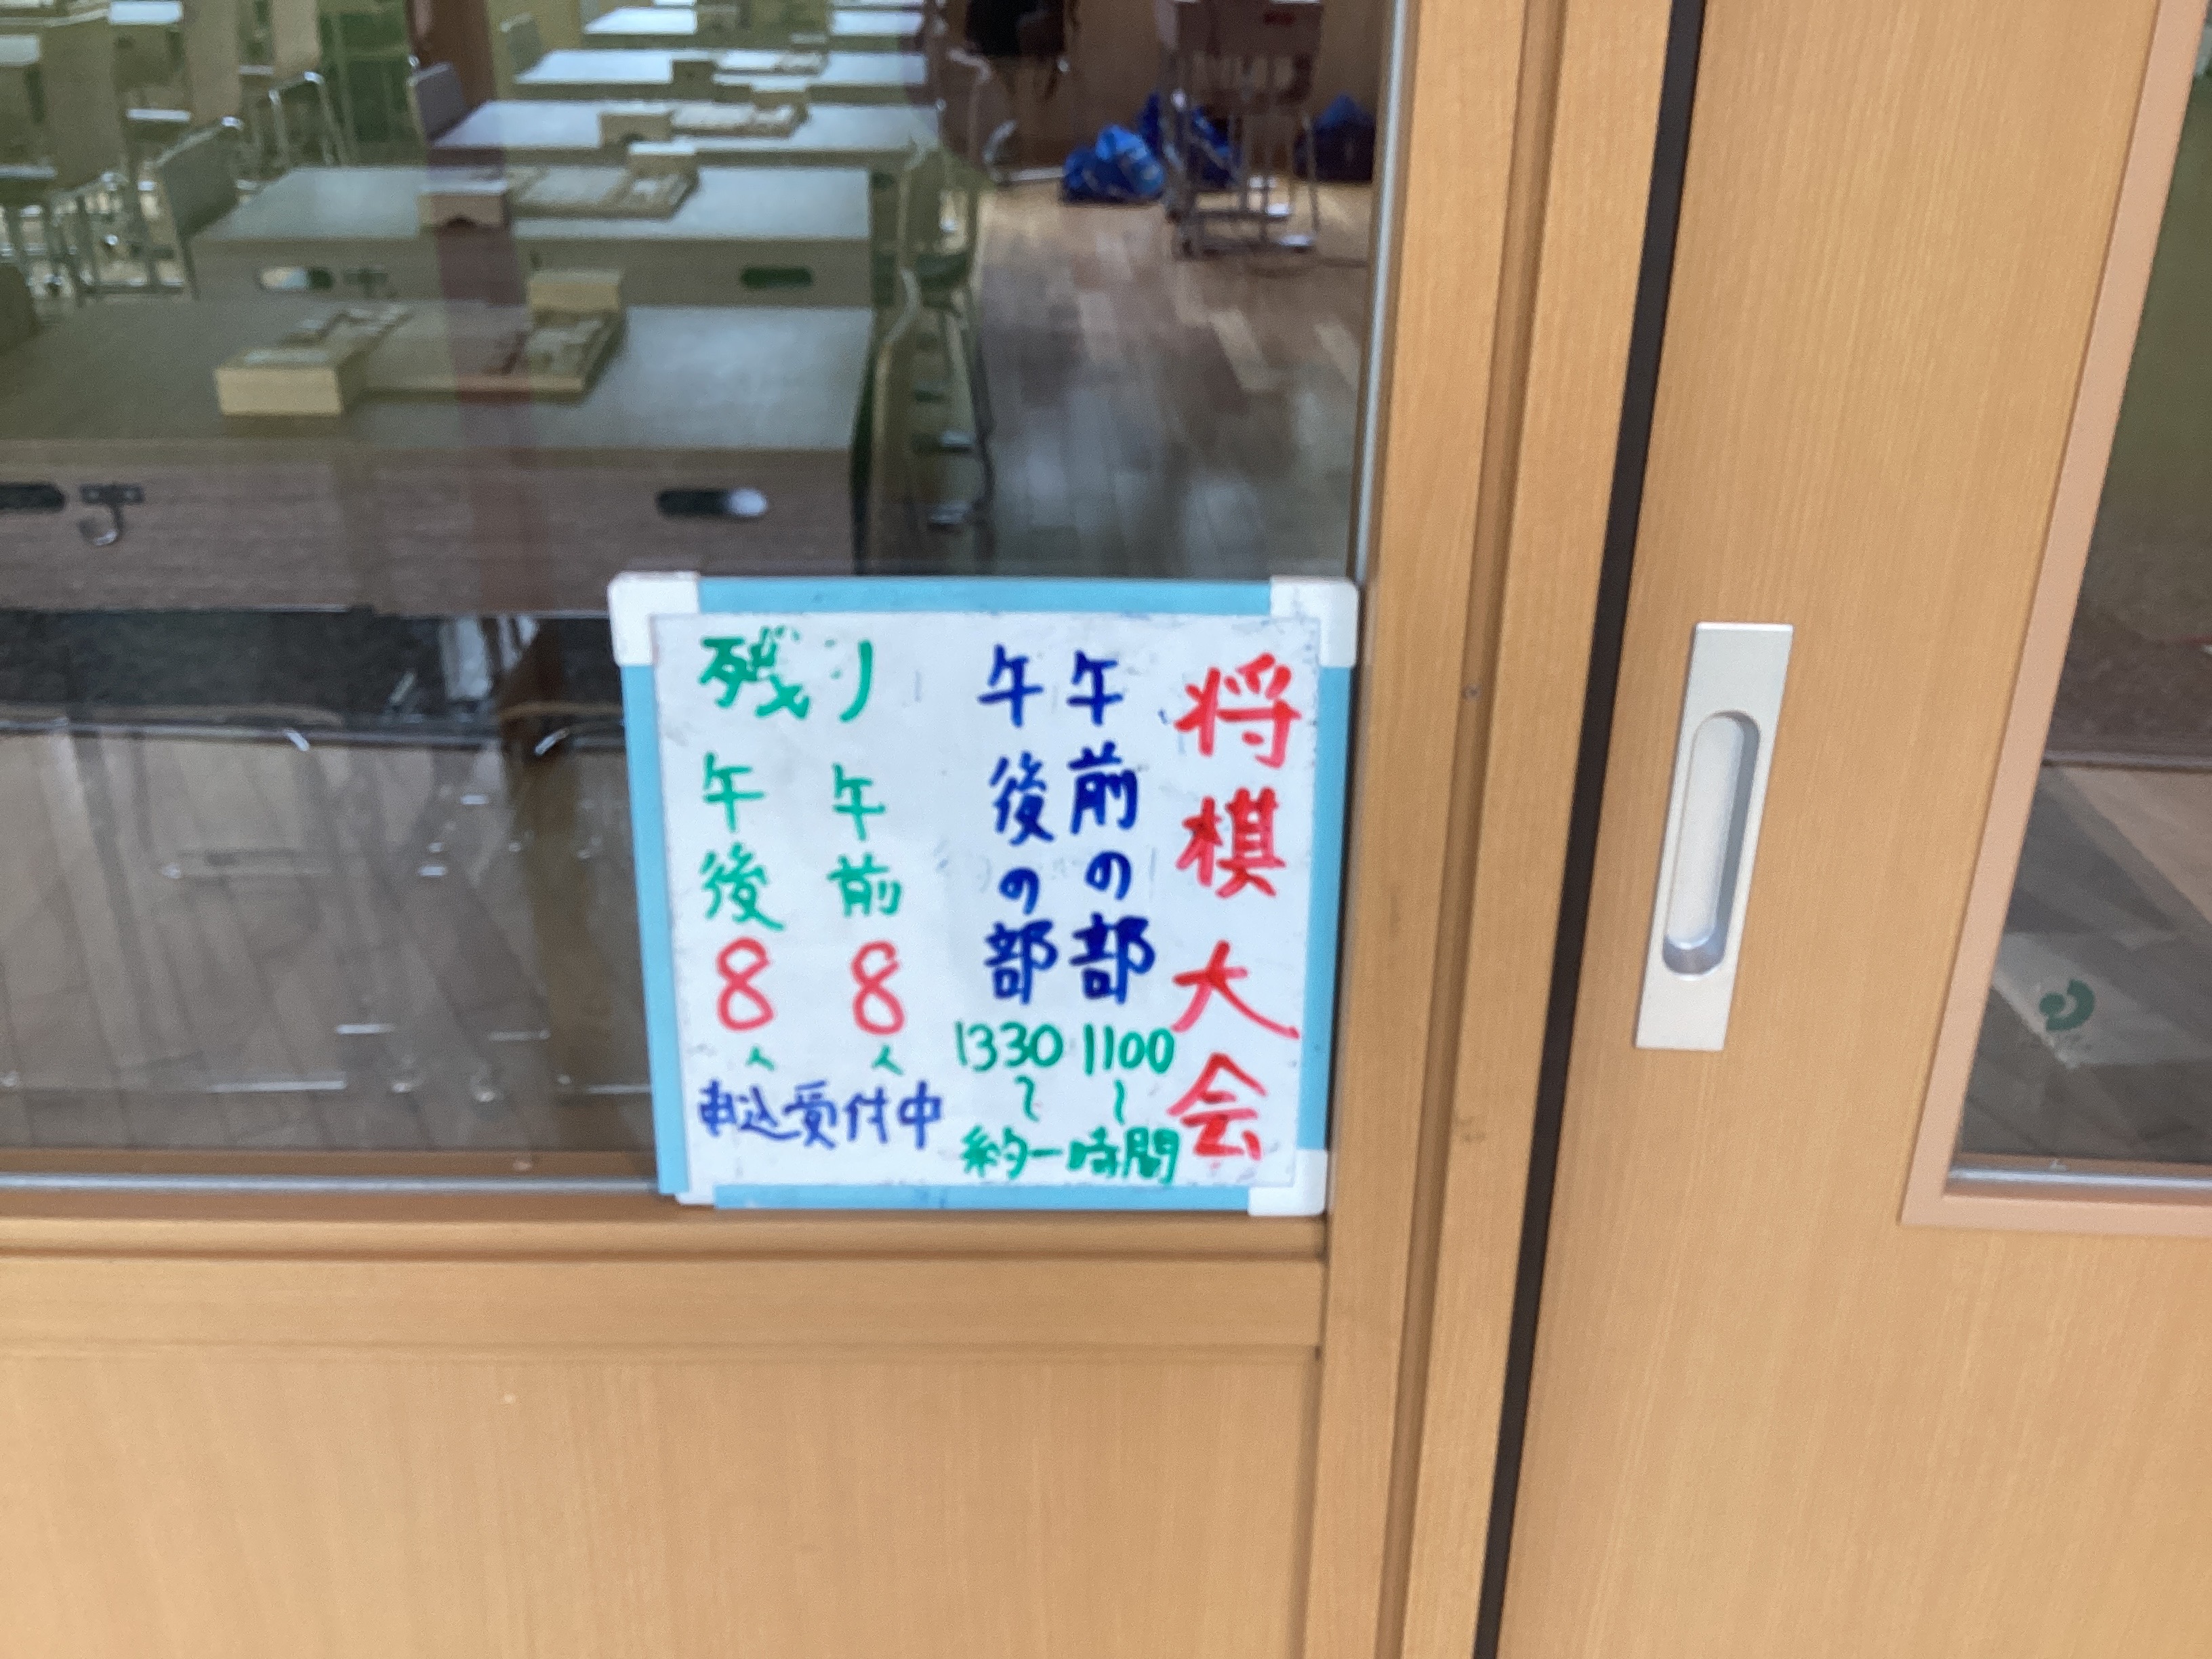 将棋大会
午前の部 1100〜
午後の部 1330〜
約一時間
残り
午前 8人
午後 8人
申込受付中